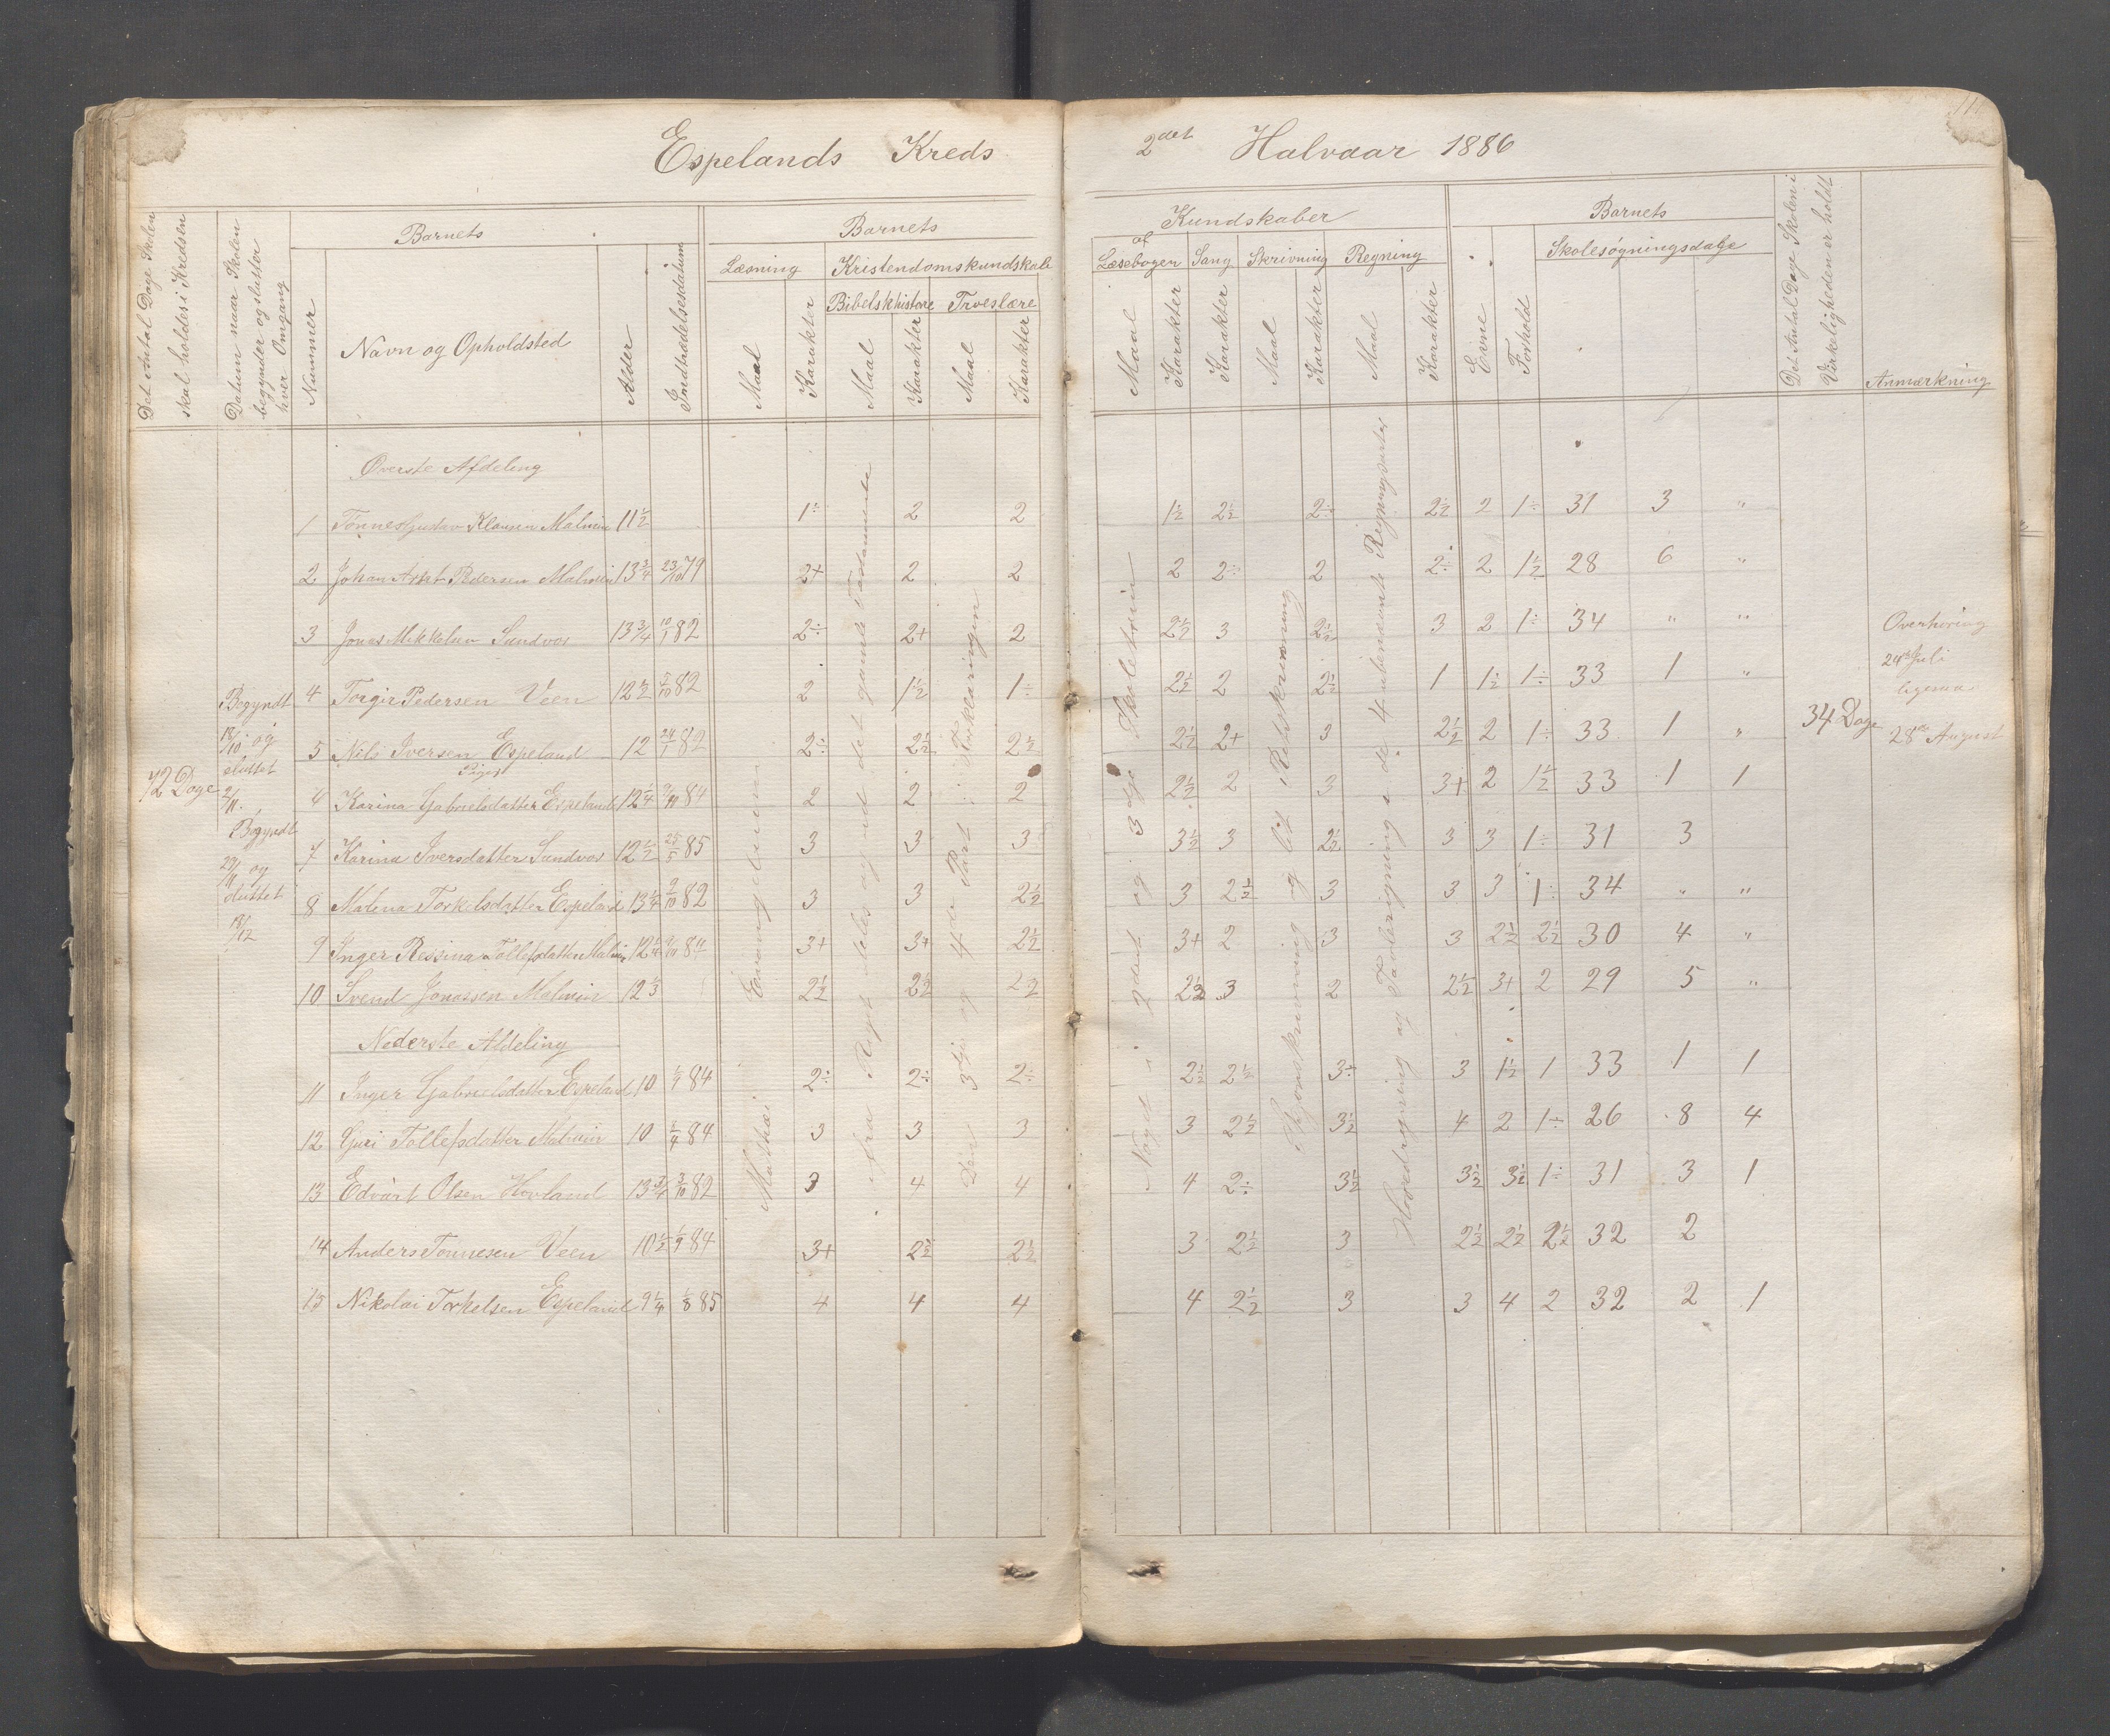 Espelands Kreds
2det Halvaar 1886
Det Antal Dage Skolen skal holdes i Kredsen
Datum naar Skolen begynder og slutter hver Omgang
Nummer
Barnets
Navn og Opholdsted
Alder
Indtrædelsesdatum
Barnets
Læsning
Kristendomskundskab
Bibelskhistorie
Troeslære
Maal
Karakter
Maal
Karakter
Maal
Karakter
Kundskaber
af
Læsebogen
Sang
Skrivning
Regning
Maal
Karakter
Karakter
Maal
Karakter
Maal
Karakter
Evne
Forhold
Barnets
Skolesøgningsdage
Det Antal Dage Skolen i Virkeligheden er holdt
Anmærkning
72 Dage
Begyndt 18/10 og sluttet 2/11.
Begyndt 29/11 og sluttet 18/12
Øverste Afdeling
1 Tønnes Gustav Klausen Malmin 11½ 1÷ 2 2 1½ 2½ 2÷ 2½ 2 1÷ 31 3 "
2 Johan Pedersen Malmin 13¾ 23/10 79 2+ 2 2 2 2÷ 2 2÷ 2 1½ 28 6 "
3 Jonas Mikkelsen Sandvos 13¾ 10/1 82 2÷ 2+ 2 2½ 3 2½ 3 2 1÷ 34 " "
4 Torgir Pedersen Veen 12½ 82 2 1½ 1÷ 2½ 2 2½ 1 1½ 1÷ 33 1 "
5 Nils Iversen Espeland 12 24/1 82 2÷ 2½ 2½ 2½ 2+ 3 2½ 2 1÷ 33 1 "
Piger
6 Karina Gabrielsdatter Espeland 12¼ 84 2 2 2 2½ 2 3 3+ 2 1½ 33 1 1
7 Karina Iversdatter Sandvos 12½ 25/5 85 3 3 3 3½ 3 2½ 3 3 1÷ 31 3
8 Malena Torkelsdatter Espeland 13¼ 9/10 82 3 3 2½ 3 2½ 3 3 3 1÷ 34 " "
9 Inger Ressina Tollefsdatter Malmin 12¼ 84 3+ 3+ 2½ 3+ 2 3 3 2½ 2½ 30 4 "
10 Svend Jonassen Malmin 12⅓ 2½ 2½ 2½ 3 2 2½ 3+ 2 29 5 "
Nederste Afdeling
11 Inger Gabrielsdatter Espeland 10 84 2÷ 2÷ 2÷ 2½ 2½ 3÷ 3 1½ 1 33 1 1
12 Guri Tollefsdatter Malmin 10 84 3 3 3 3 2½ 3½ 4 2 1÷ 26 8 4
13 Edvart Olsen Hovland 13¾ 3/10 82 3 4 4 4 2÷ 3½ 3½ 3½ 1÷ 31 3 1
14 Anders Tønnesen Veen 10½ 1/9 84 3+ 2½ 2½ 3 2½ 3 2½ 2½ 2½ 32 2
15 Nikolai Torkelsen Espeland 9¼ 1/8 85 4 4 4 4 2½ 3 3 4 2 32 2 1
Mathæi Evangelium
fra Rigets deles og ud det gamle Testamente
Den 3die og 4de Part i Forklaringen
Noget i 2det og 3die Skoletrin
Skjønskrivning og lit Retskrivning
Hovedregning og Tavleregning i de 4 ubenævnte Regningsarter
34 Dage
Overhøring
24de Juli
ligesaa
28de August